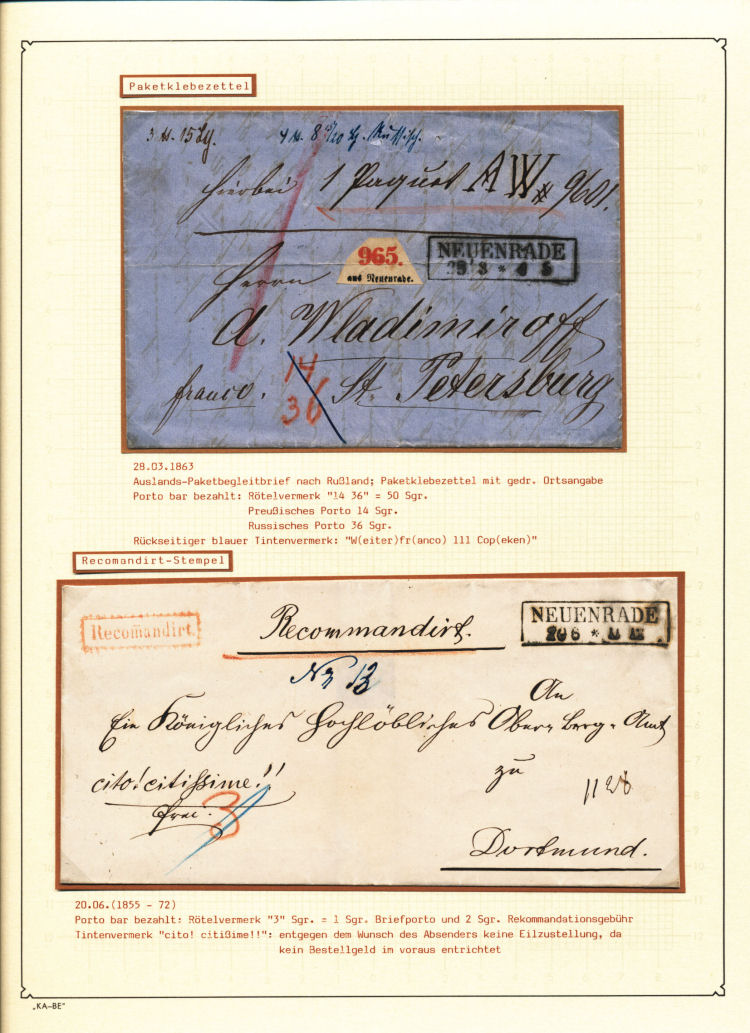 Paketklebezettel
franco.
hierbei 1 Paquet AW 9601.
965.
aus Neuenrade.
NEUENRADE
Herrn
A. Wladimiroff
St. Petersburg
14
36
28.03.1863
Auslands-Paketbegleitbrief nach Rußland; Paketklebezettel mit gedr. Ortsangabe
Porto bar bezahlt: Rötelvermerk "14 36" = 50 Sgr.
Preußisches Porto 14 Sgr.
Russisches Porto 36 Sgr.
Rückseitiger blauer Tintenvermerk: "W(eiter)fr(anco) 111 Cop(eken)"
Recomandirt-Stempel
Recomandirt.
Recommandirt.
NEUENRADE
An
Ein Königliches Hochlöbliches Ober-Berg-Amt
cito! citißime!!
zu
frei.
3
1128
Dortmund.
20.06.(1855 - 72)
Porto bar bezahlt: Rötelvermerk "3" Sgr. = 1 Sgr. Briefporto und 2 Sgr. Rekommandationsgebühr
Tintenvermerk "cito! citißime!!": entgegen dem Wunsch des Absenders keine Eilzustellung, da
kein Bestellgeld im voraus entrichtet
„KA-BE"